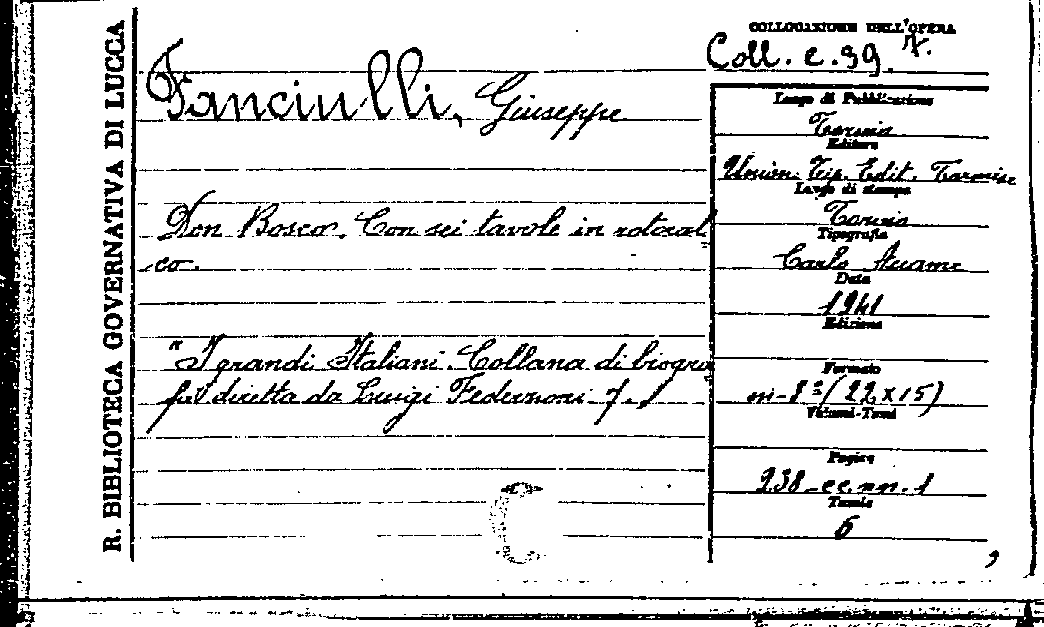 R. BIBLIOTECA GOVERNATIVA DI LUCCA
Fanciulli, Giuseppe
Don Bosco. Con sei tavole in rotocal
co.
"I grandi Italiani. Collana di biogra
fie diretta da Luigi Federzoni. 7."
COLLOCAZIONE DELL'OPERA
Coll. c. 39. 7.
Luogo di Pubblicazione
Torino
Editore
Union. Tip. Edit. Torinese
Luogo di stampa
Torino
Tipografia
Carlo Accame
Data
1941
Edizione
Formato
in-8º (22 x 15)
Volumi-Tomi
Pagine
238 cc. nn. 1
Tavole
6